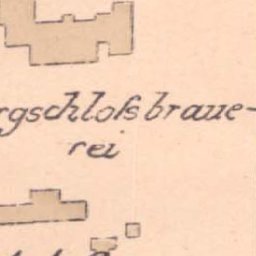 rgschloſsbraue-
rei